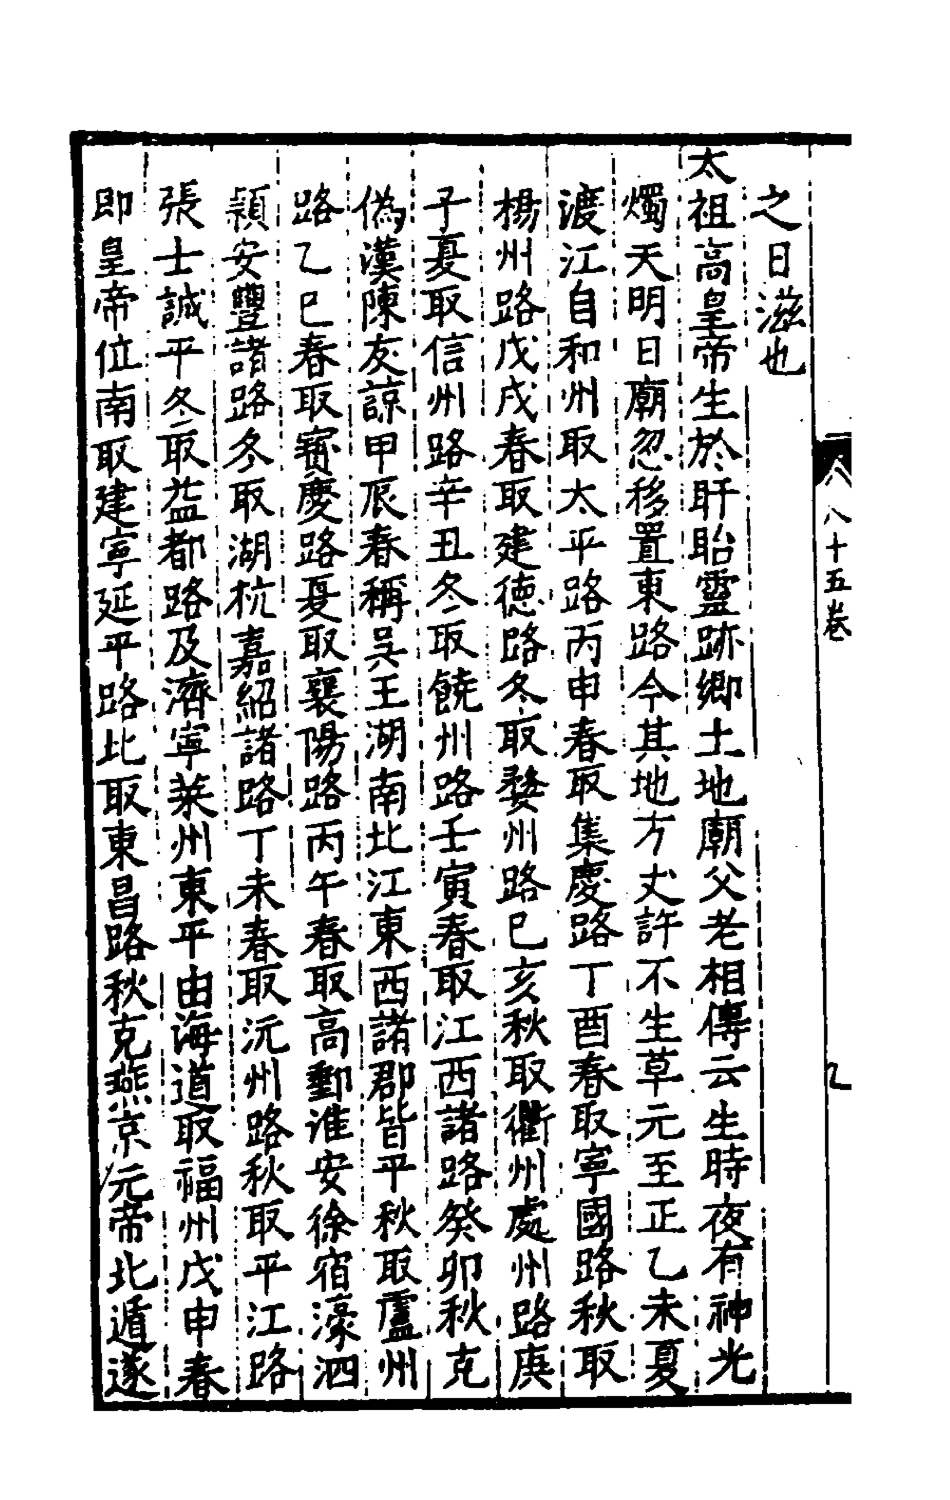 八十五卷
九
之日滋也
太祖高皇帝生於盱眙靈跡鄉土地廟父老相傳云生時夜有神光
燭天明日廟忽移置東路今其地方丈許不生草元至正乙未夏
渡江自和州取太平路丙申春取集慶路丁酉春取寧國路秋取
楊州路戊戌春取建德路冬取婺州路己亥秋取衢州處州路庚
子夏取信州路辛丑冬取饒州路壬寅春取江西諸路癸卯秋克
偽漢陳友諒甲辰春稱吴王湖南北江東西諸郡皆平秋取廬州
路乙巳春取寳慶路夏取襄陽路丙午春取高郵淮安徐宿濠泗
潁安豐諸路冬取湖杭嘉紹諸路丁未春取沅州路秋取平江路
張士誠平冬取益都路及濟寧萊州東平由海道取福州戊申春
即皇帝位南取建寧延平路北取東昌路秋克燕京元帝北遁遂